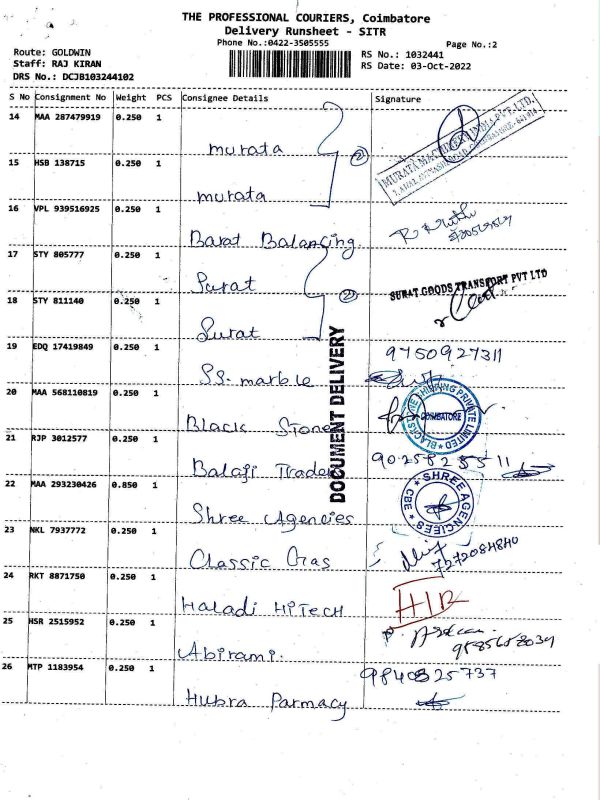 THE PROFESSIONAL COURIERS, Coimbatore
Delivery Runsheet - SITR
Phone No.:0422-3505555
Page No.:2
Route: GOLDWIN
Staff: RAJ KIRAN
DRS No.: DCJB103244102
RS No.: 1032441
RS Date: 03-Oct-2022
S No Consignment No Weight PCS Consignee Details Signature
14 MAA 287479919 0.250 1 murata
15 HSB 138715 0.250 1 murata
2
MURATA MACHINERY INDIA PVT. LTD.
16 VPL 939516925 0.250 1 Barat Balancing
17 STY 805777 0.250 1 Surat
2
SURAT GOODS TRANSPORT PVT LTD
18 STY 811140 0.250 1 Surat
19 EDQ 17419849 0.250 1 SS. marble 9750927311
20 MAA 568110819 0.250 1 Black Stone
COIMBATORE
21 RJP 3012577 0.250 1 Balaji Trader
DOCUMENT DELIVERY
22 MAA 293230426 0.850 1 Shree Agencies
SHREE AGENCIEES
CBE
23 NKL 7937772 0.250 1 Classic Gas 7272084840
24 RKT 8871750 0.250 1 Haladi HiTech
25 HSR 2515952 0.250 1 Abirami.
26 MTP 1183954 0.250 1 Hubra Parmacy 9840325737